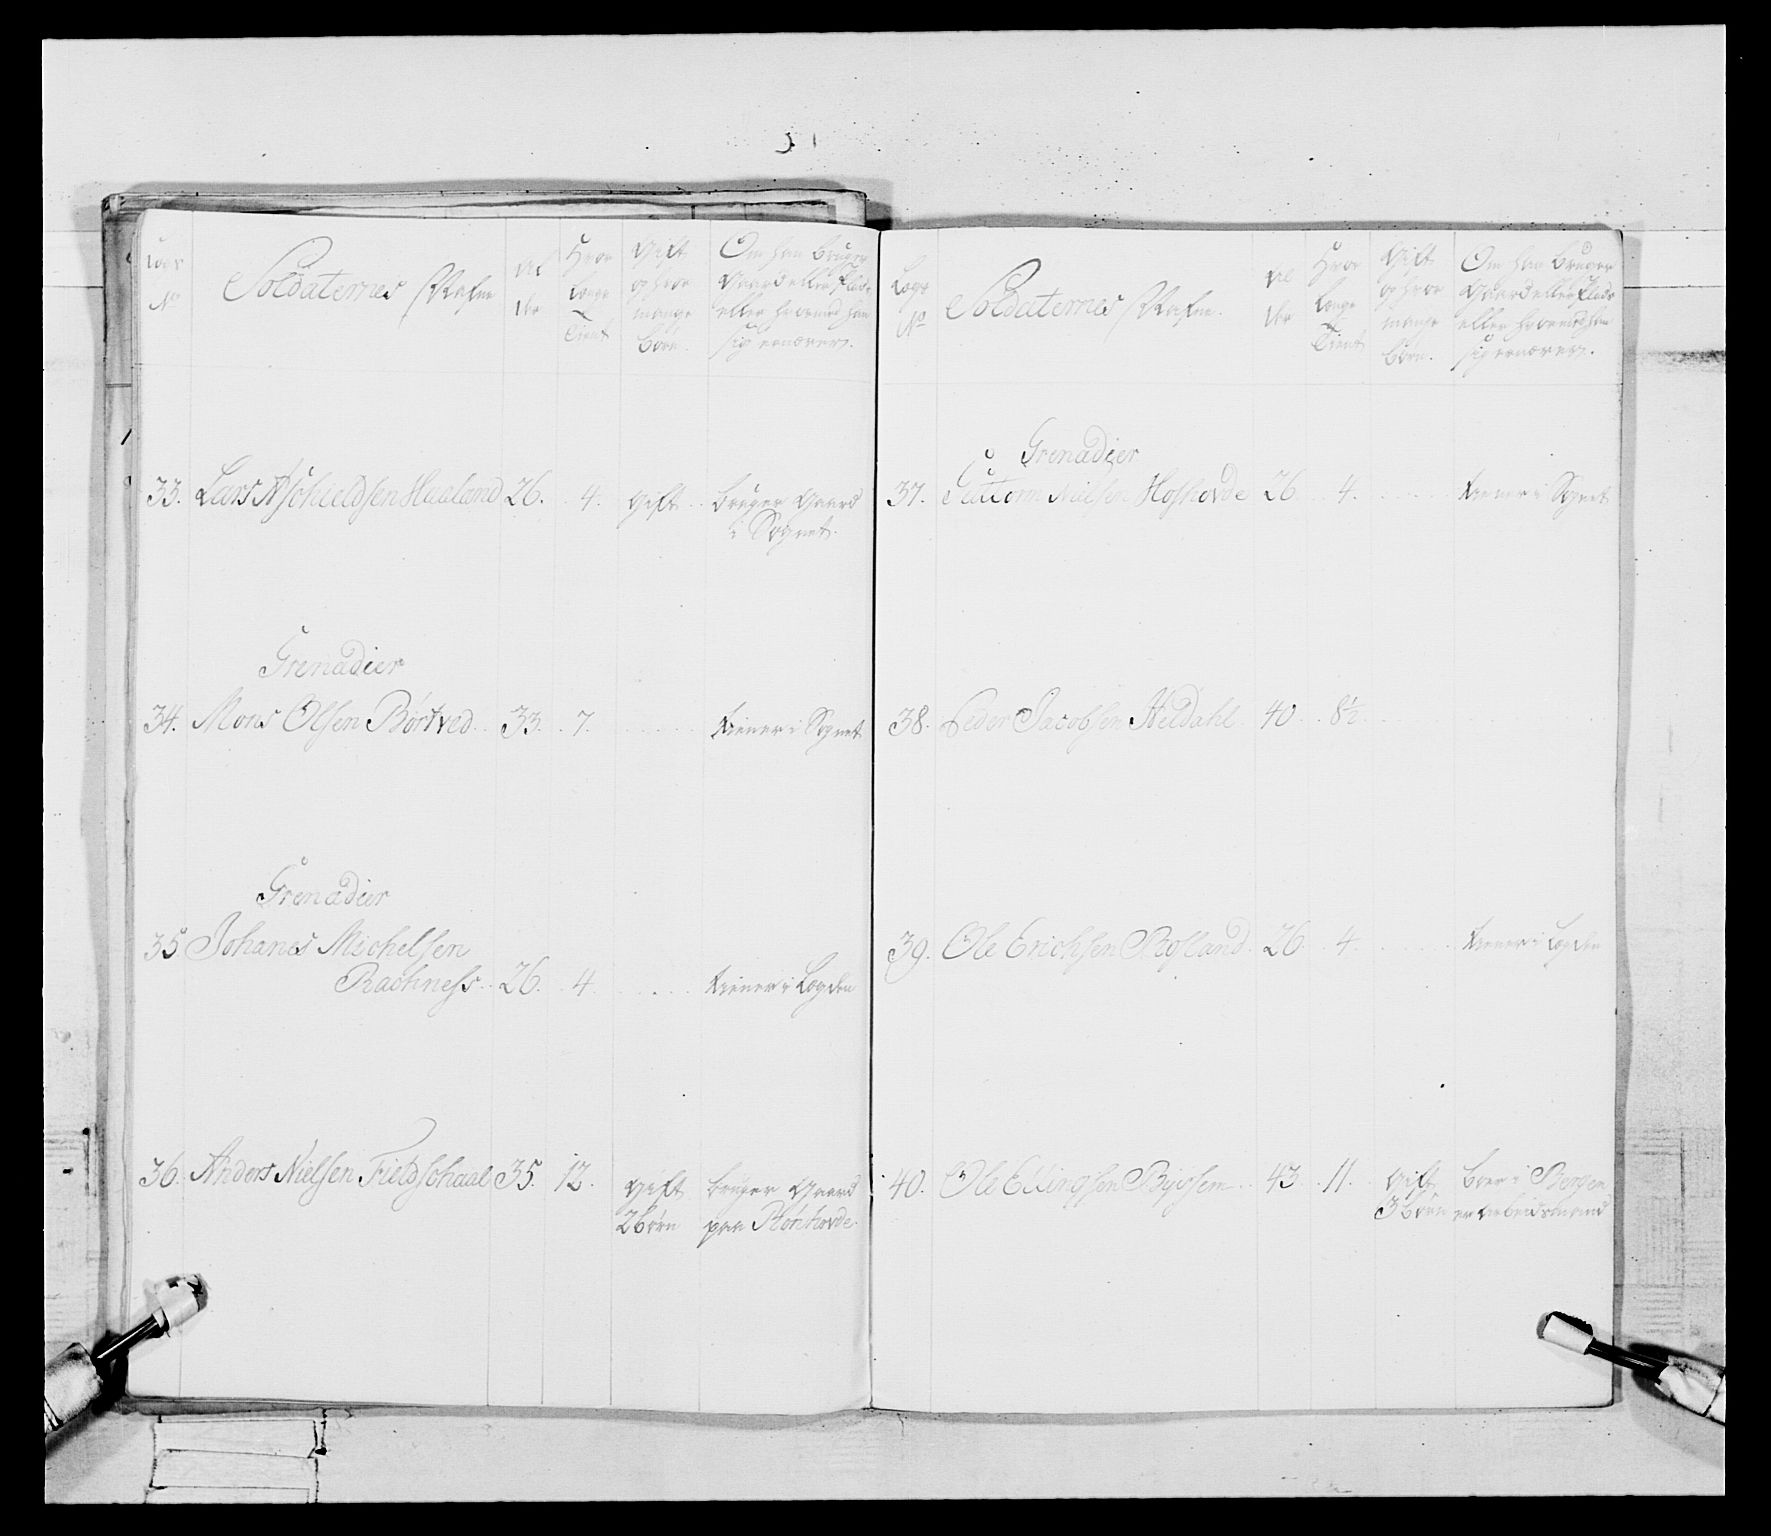 Lægs No
Soldaternes Nafne
Al der
Hvor Længe Tient
Gift og hvor mange Børn.
Om han bruger Gaard eller Plads eller hvormed han sig ernærer.
33. Lars Aschieldsen Haaland 26. 4. Gift bruger Gaard
i Sognet.
Grenadier
34. Mons Olsen Børtved 33. 7. tiener i Sognet
Grenadier
35. Johanes Michelsen
Rachness 26. 4. tiener i Lægden
36. Anders Nielsen Fieldschaal 35. 12. Gift bruger Gaard
2 børn paa
Lægs No
Soldaternes Nafne.
Al der
Hvor Længe Tient
Gift og hvor mange Børn.
Om han bruger Gaard eller Plads eller hvormed han sig ernærer.
Grenadier
37. Guttorm Nielsen Hofhovde 26 4. tiener i Sognet
38. Peder Jacobsen Høldahl 40 8½
39. Ole Erichsen Rosland 26 4. tiener i Lægden
40. Ole Ellingsen 43 11. Gift boer i Bergen
3 børn er arbeidsmand